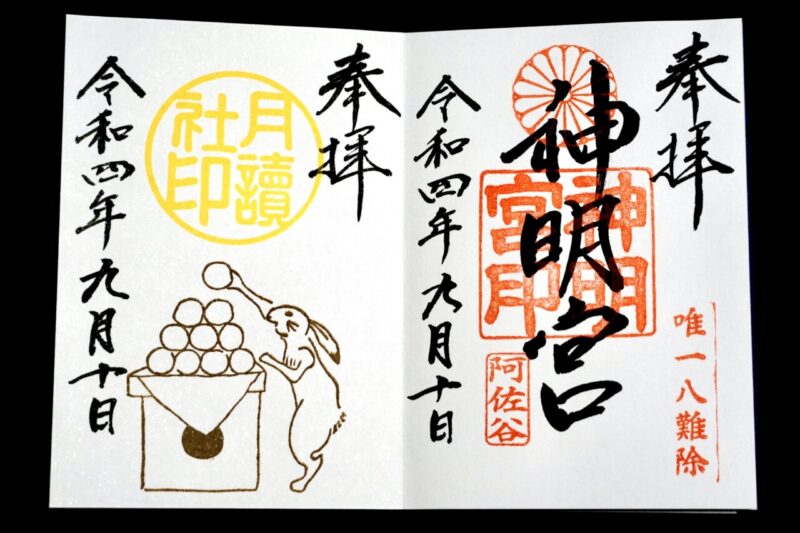 奉拝
神明宮
神明宮印
阿佐谷
唯一八難除
令和四年九月十日
奉拝
月讀社印
令和四年九月十日